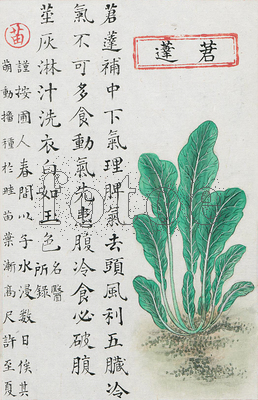 莙薘
莙薘補中下氣理脾氣去頭風利五臟冷
氣不可多食動氣先患腹冷食必破腹
莖灰淋汁洗衣白如玉色名醫所錄
苗
謹按圃人春間以子水浸數日俟其
萌動播種於畦苗葉漸高尺許至夏